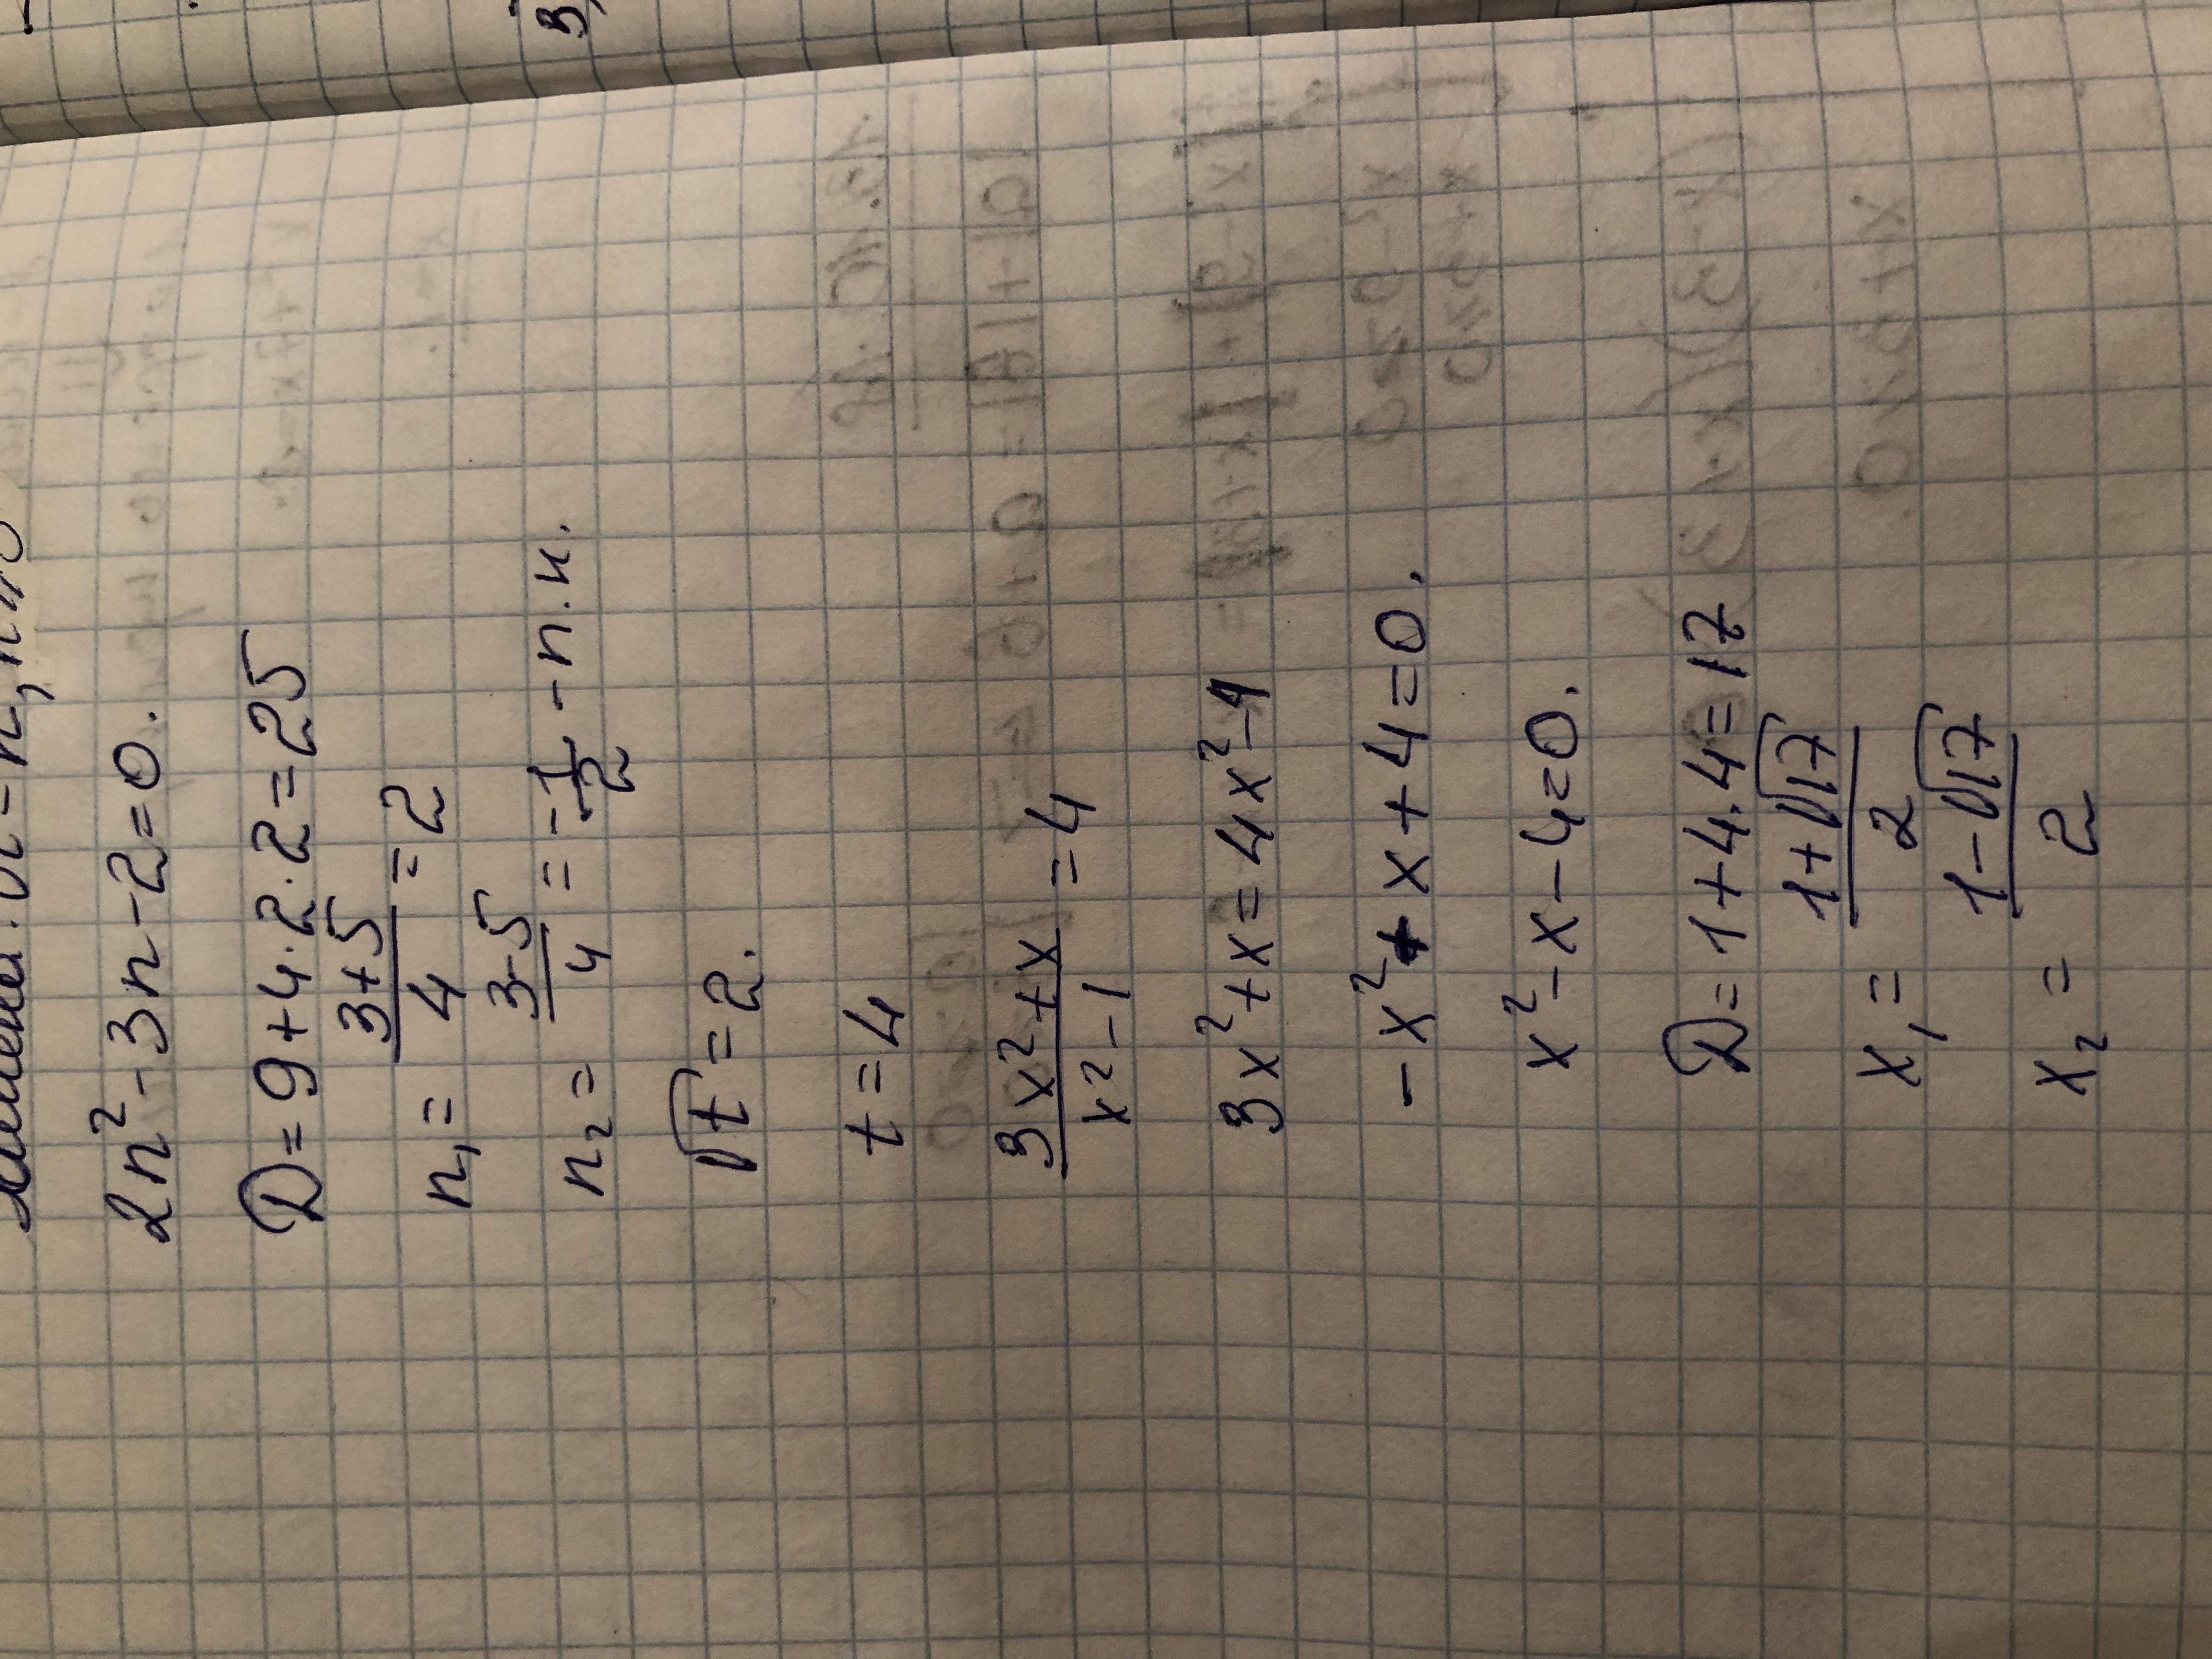 2n² - 3n - 2 = 0.
D = 9 + 4 · 2 · 2 = 25
n₁ = (3+5)/4 = 2
n₂ = (3-5)/4 = -1/2 - п.к.
√t = 2.
t = 4
(3x² + x)/(x² - 1) = 4
3x² + x = 4x² - 4
-x² + x + 4 = 0.
x² - x - 4 = 0.
D = 1 + 4 · 4 = 17
x₁ = (1 + √17)/2
x₂ = (1 - √17)/2